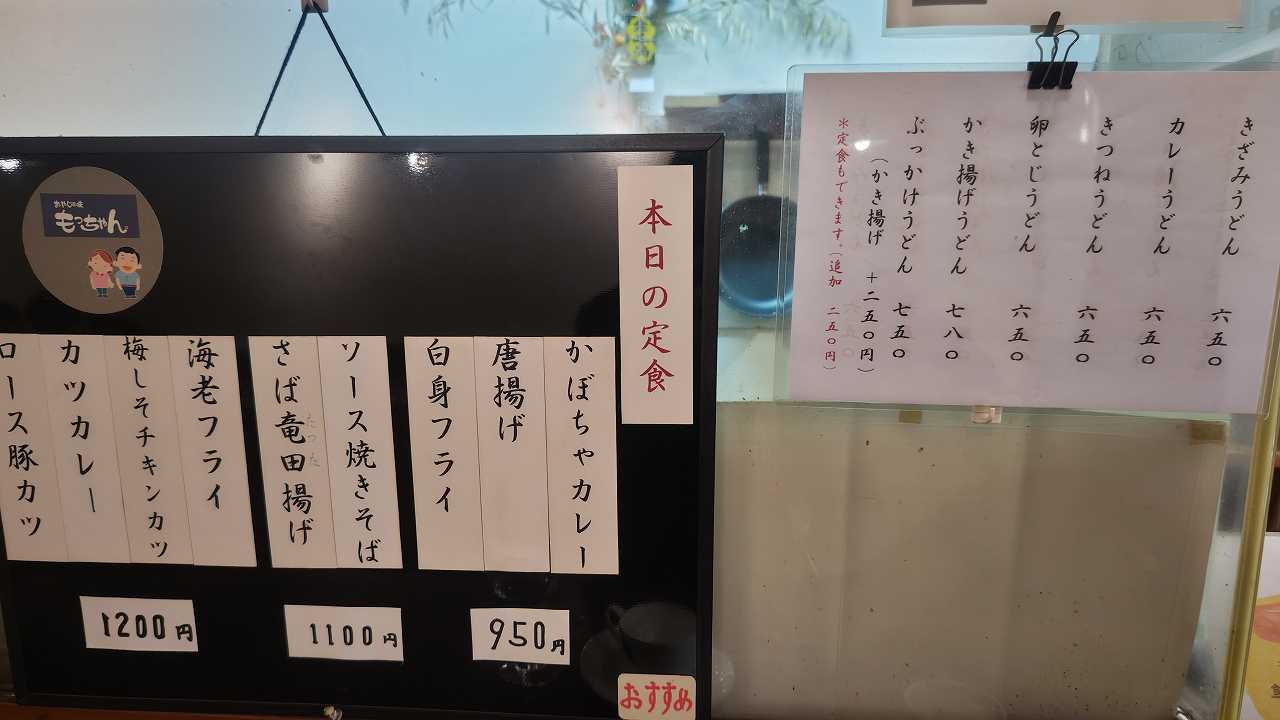 おやじの味
もっちゃん。
本日の定食
かぼちゃカレー
唐揚げ
白身フライ
950円
ソース焼きそば
さば竜田揚げ
たつた
1100円
海老フライ
梅しそチキンカツ
カツカレー
ロース豚カツ
1200円
おすすめ
きざみうどん 六五〇
カレーうどん 六五〇
きつねうどん 六五〇
卵とじうどん 六五〇
かき揚げうどん 七八〇
ぶっかけうどん 七五〇
(かき揚げ +二五〇円)
*定食もできます。(追加 二五〇円)